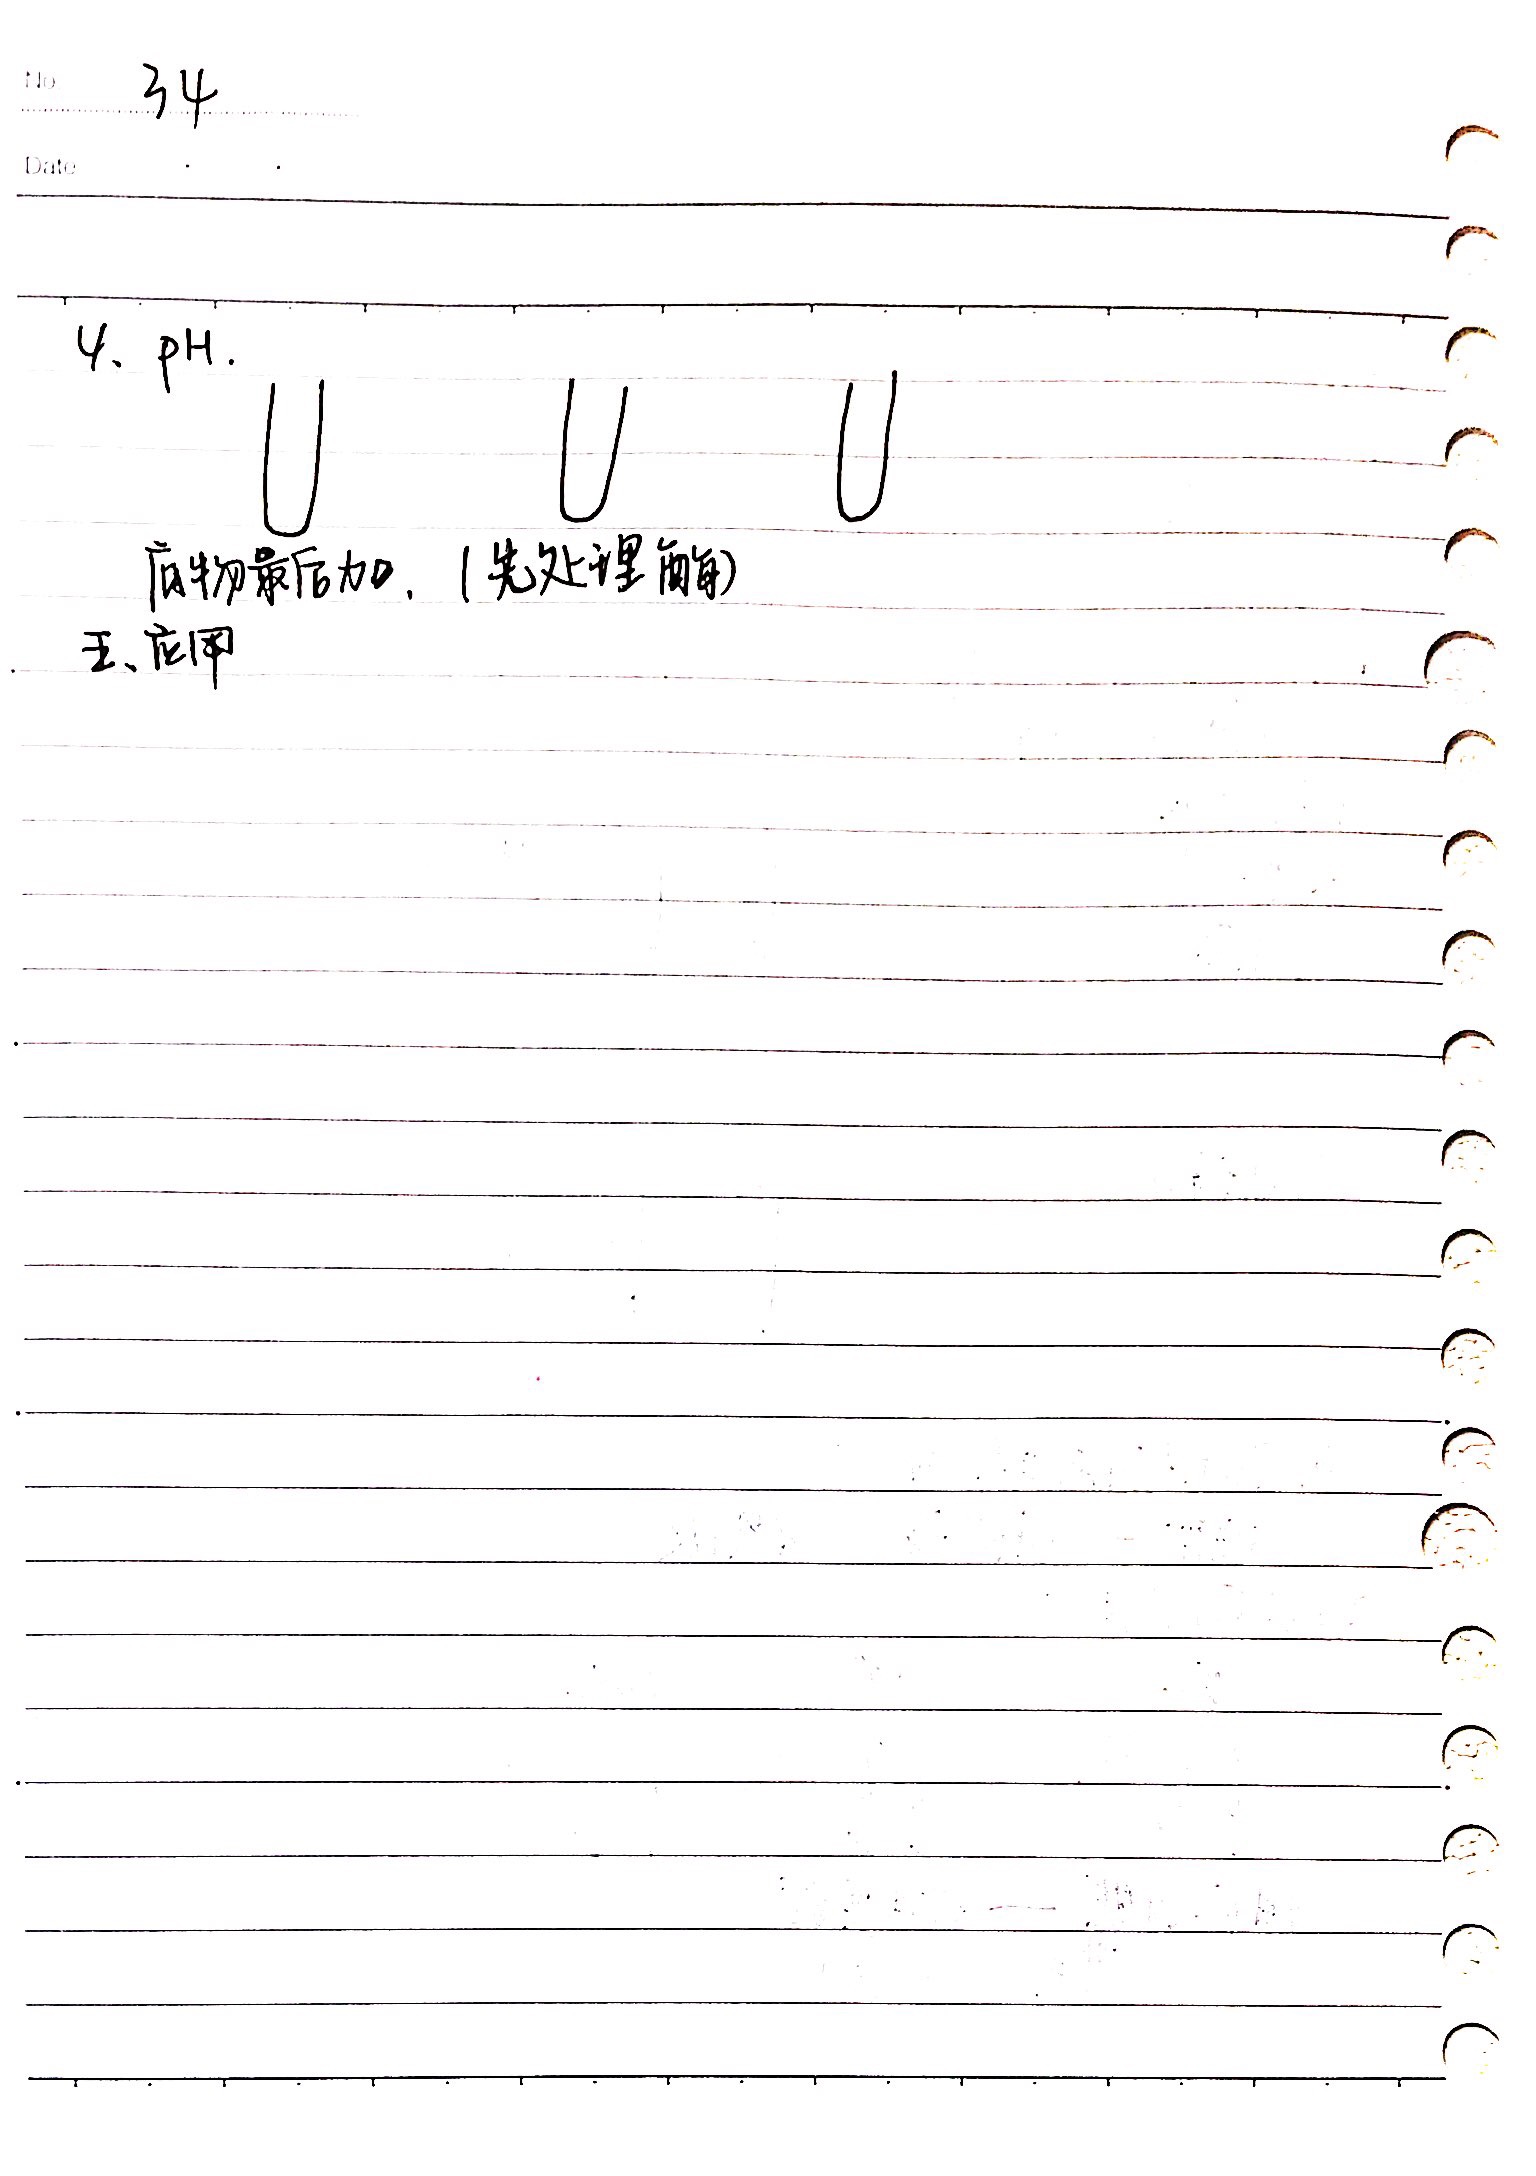 No. 34
Date
4、pH.
底物最后加.(先处理酶)
五、应用